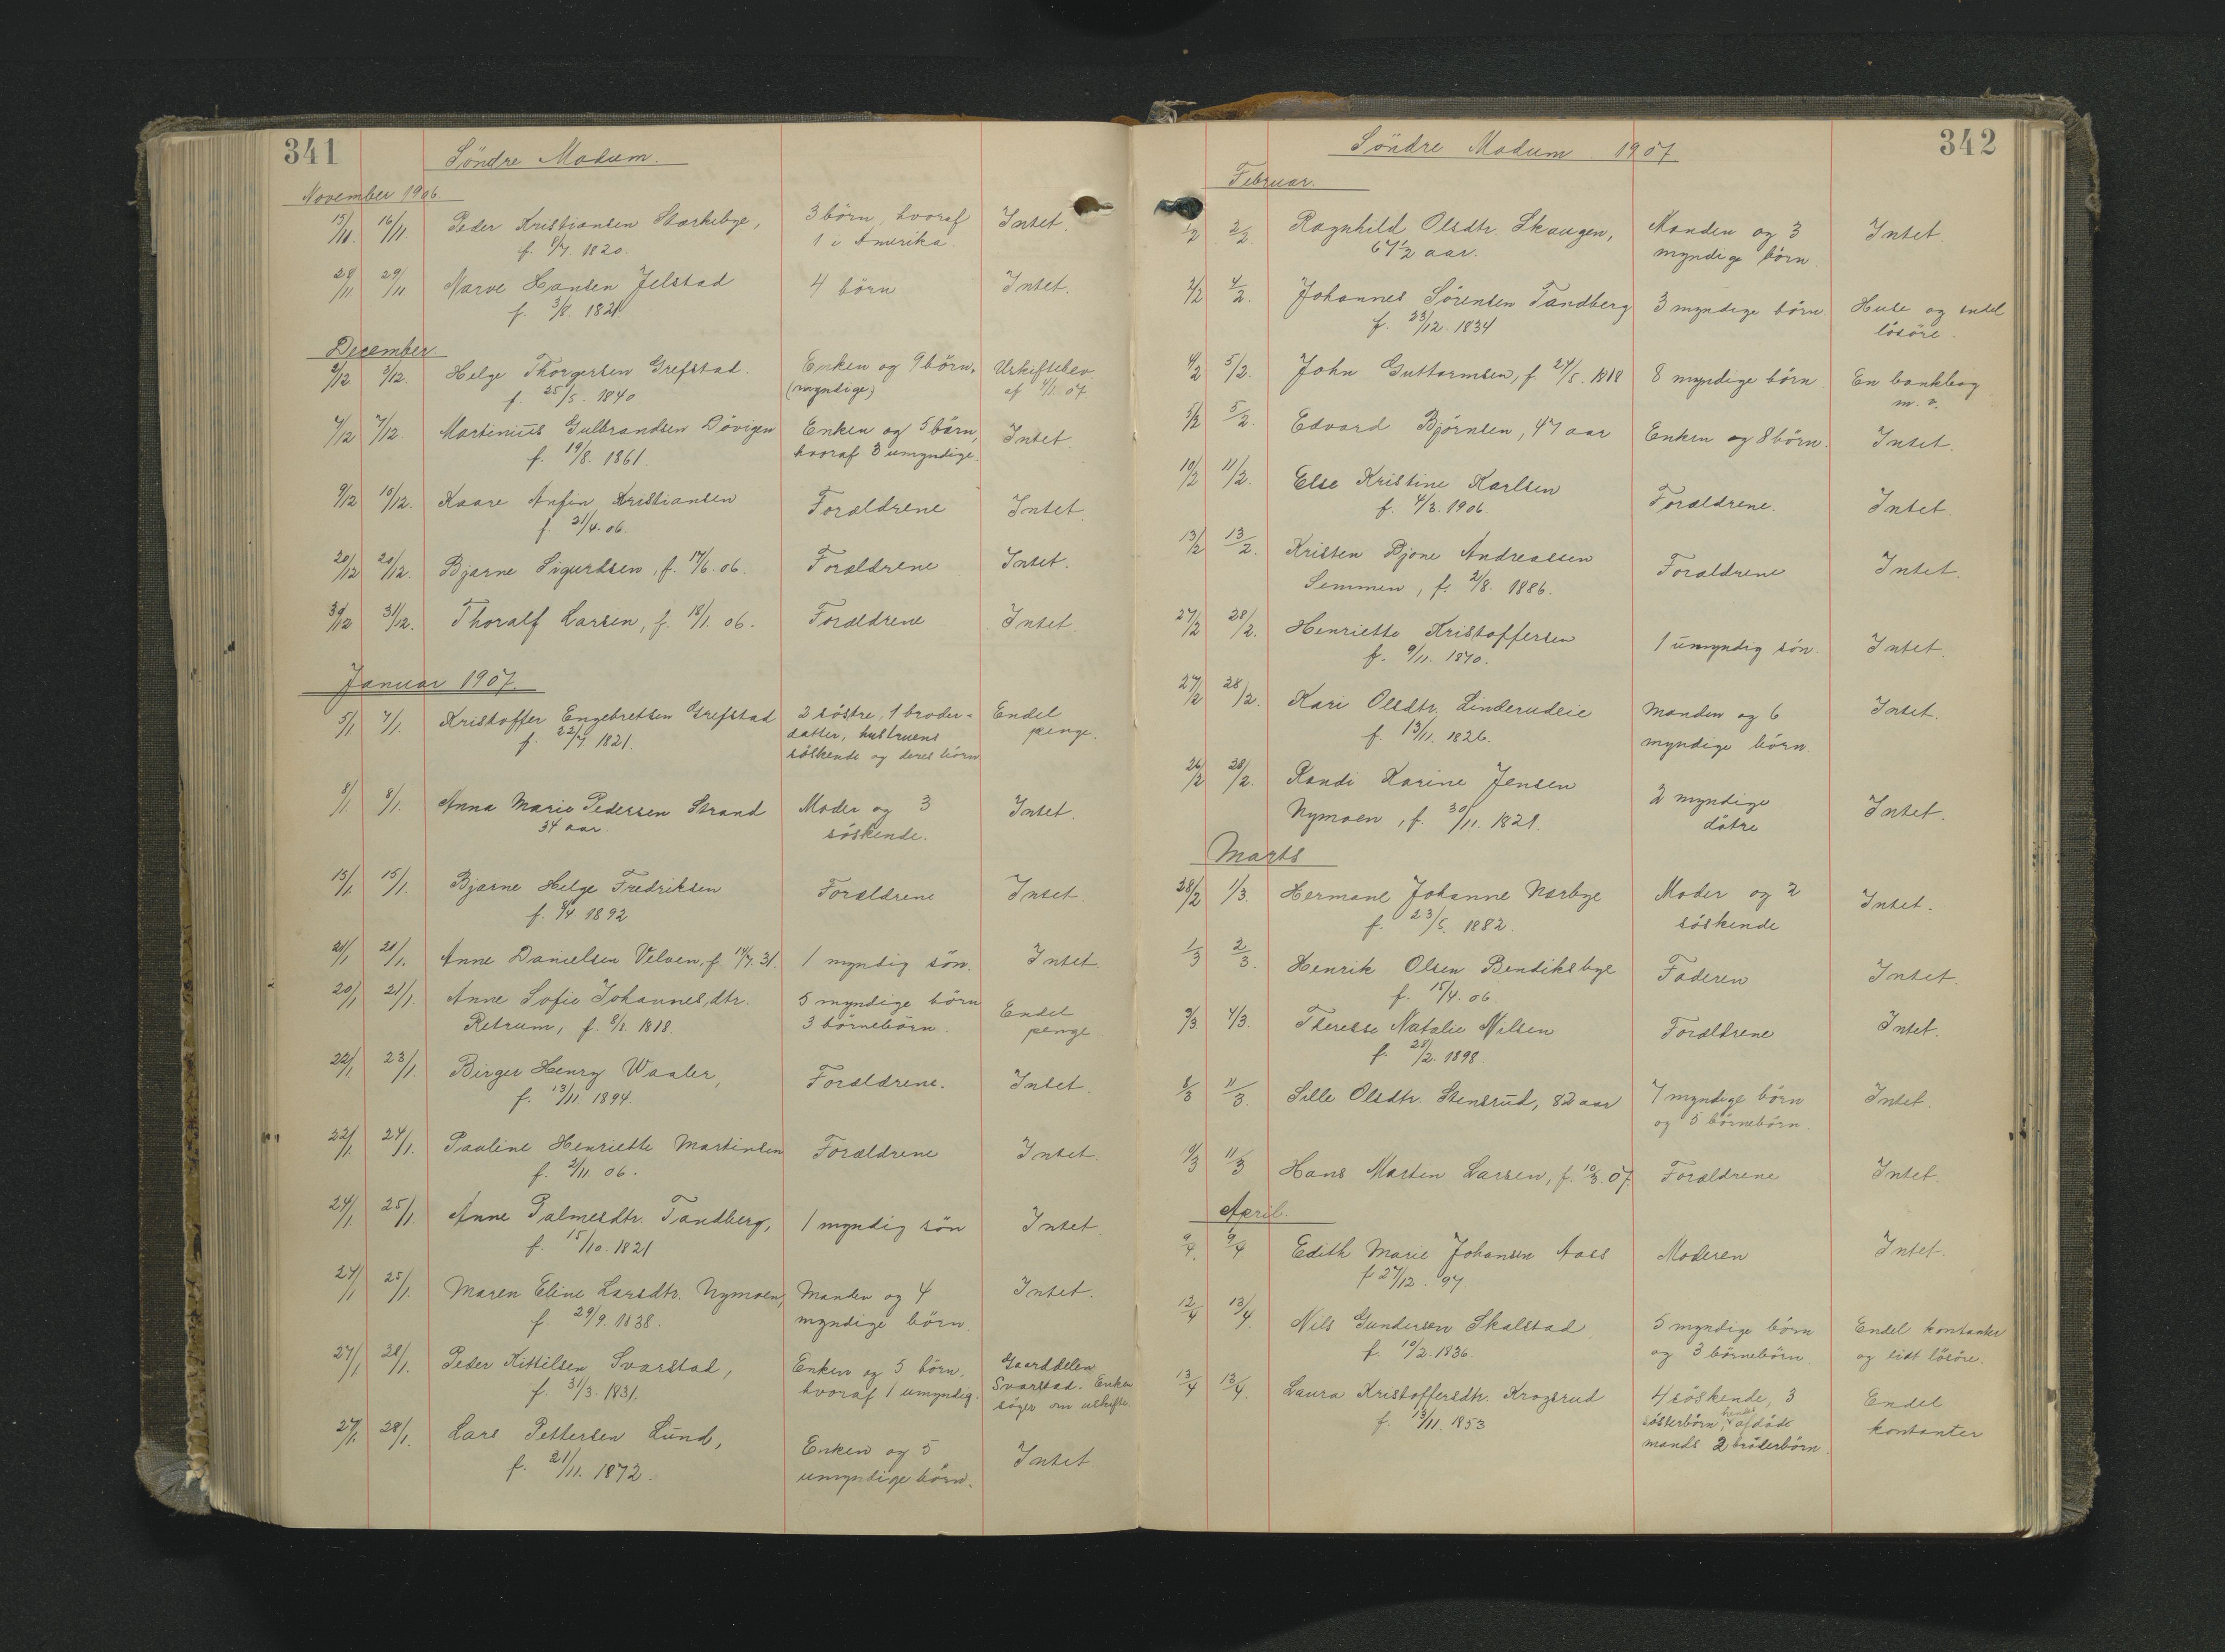 341
Söndre Modum.
November 1906.
15/11. 16/11. Peder Kristiansen Starkebye, 3 börn, hvoraf Intet.
f. 8/7. 1820. 1 i Amerika.
28/11 29/11 Narve Hansen Jelstad 4 börn Intet.
f. 3/8. 1821.
December
2/12. 3/12. Helge Thorgersen Grefstad. Enken og 9 börn. Uskiftebev
f. 25/5. 1840 (myndige) af 4/1. 07.
4/12 7/12. Martinius Gulbrandsen Dövigen Enken og 5 börn, Intet.
f. 19/8. 1861. hvoraf 3 umyndige.
9/12 10/12. Kaare Anfin Kristiansen Forældrene Intet
f. 21/4. 06.
20/12 20/12. Bjarne Sigurdsen, f. 17/6. 06. Forældrene Intet.
30/12 31/12. Thoralf Larsen, f. 18/1. 06. Forældrene Intet
Januar 1907.
5/1 7/1. Kristoffer Engebretsen Grefstad 2 söstre, 1 broder- Endel
f. 22/7. 1821. datter, hustruens penge.
söskende og deres börn
8/1. 8/1. Anna Marie Pedersen Strand Moder og 3 Intet.
34 aar. söskende.
13/1. 15/1. Bjarne Helge Fredriksen Forældrene Intet.
f. 8/4. 1892
21/1 21/1. Anne Danielsen Velven, f. 14/7. 31. 1 myndig sön. Intet
20/1 21/1. Anne Sofie Johannesdtr. 5 myndige börn Endel
Retrum, f. 8/8. 1818. 3 börnebörn. penge
22/1. 23/1. Birger Henry Waaler, Forældrene. Intet.
f. 13/11. 1894.
22/1. 24/1. Pauline Henriette Martinsen Forældrene Intet.
f. 2/11. 06.
24/1. 25/1 Anne Palmesdtr. Tandberg, 1 myndig sön Intet.
f. 15/10. 1821
24/1 25/1. Maren Eline Larsdtr. Nymoen, Manden og 4 Intet.
f. 29/9. 1838. myndige börn.
27/1 28/1. Peder Kittilsen Svarstad, Enken og 5 börn, Gaarddelen
f. 31/3. 1831. hvoraf 1 umyndig. Svarstad. Enken
söger om uskifte.
27/1. 28/1. Lars Pettersen Lund, Enken og 5 Intet
f. 21/11. 1872. umyndige börn.
342
Söndre Modum 1907.
Februar.
1/2 2/2. Ragnhild Olsdtr Skaugen, Manden og 3 Intet
67 1/2 aar. myndige börn.
2/2 4/2. Johannes Sörensen Tandberg 3 myndige börn. Huse og endel
f. 23/12. 1834 lösöre.
4/2 5/2. John Guttormsen, f. 24/5. 1818 8 myndige börn En bankbog
m. v.
5/2 5/2. Edvard Björnsen, 47 aar Enken og 8 börn. Intet.
10/2 11/2. Else Kristine Karlsen Forældrene. Intet.
f. 4/3. 1906.
13/2 13/2. Kristen Bjone Andreassen Forældrene Intet.
Semmen, f. 2/8. 1886.
27/2 28/2. Henriette Kristoffersen 1 umyndig sön. Intet.
f. 9/11. 1870.
27/2 28/2. Kari Olsdtr. Linderudeie Manden og 6 Intet.
f. 13/11. 1826. myndige börn.
26/2 28/2. Randi Karine Jensen 2 myndige Intet.
Nymoen, f. 30/11. 1821. döttre
Marts
28/2 1/3. Hermane Johanne Norbye Moder og 2 Intet.
f. 23/5. 1882. söskende
1/3 2/3. Henrik Olsen Bendiksbye Faderen Intet.
f. 15/4. 06.
3/3. 4/3. Therese Natalie Nilsen Forældrene Intet.
f. 28/2. 1898.
8/3 11/3. Sille Olsdtr. Stensrud, 82 aar 7 myndige börn Intet.
og 5 börnebörn.
9/3 11/3 Hans Morten Larsen, f. 10/3. 07. Forældrene Intet
April.
9/4. 9/4 Edith Marie Johansen Aass Moderen Intet.
f 27/12. 97.
12/4 13/4. Nils Gundersen Skalstad 5 myndige börn Endel kontanter
f. 10/2. 1836. og 3 börnebörn. og lidt lösöre.
13/4 13/4. Laura Kristoffersdtr. Krogsrud 4 söskende, 3 Endel
f. 13/11. 1853 sösterbörn, hendes afdöde kontanter
mands 2 bröderbörn.